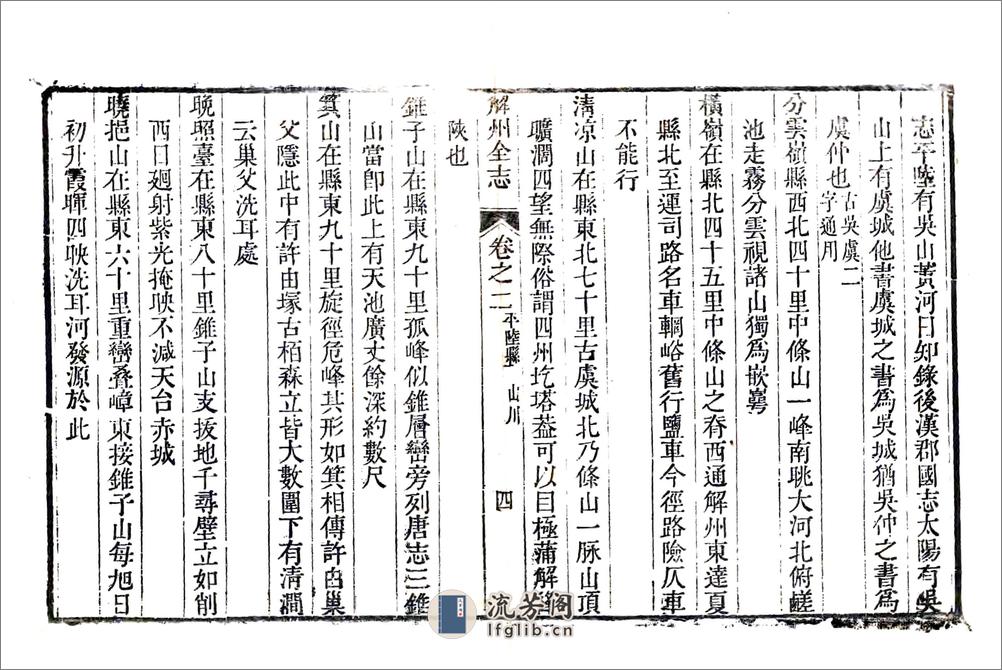 志平陸有吳山黃河日知錄後漢郡國志太陽有吳
山上有虞城他書虞城之書為吳城猶吳仲之書為
虞仲也古吳虞二字通用
分雲嶺縣西北四十里中條山一峰南眺大河北俯鹺
池走霧分雲視諸山獨為嵌崿
橫嶺在縣北四十五里中條山之脊西通解州東達夏
縣北至運司路名車輞峪舊行鹽車今徑路險仄車
不能行
清凉山在縣東北七十里古虞城北乃條山一脉山頂
曠濶四望無際俗謂四州圪塔葢可以目極蒲解絳
陝也
解州全志
卷之二
平陸縣
山川
四
錐子山在縣東九十里孤峰似錐層巒旁列唐志三錐
山當卽此上有天池廣丈餘深約數尺
箕山在縣東九十里旋徑危峰其形如箕相傳許由巢
父隱此中有許由塚古栢森立皆大數圍下有清澗
云巢父洗耳處
晚照臺在縣東八十里錐子山支拔地千尋壁立如削
西日廻射紫光掩映不減天台赤城
曉挹山在縣東六十里重巒叠嶂東接錐子山每旭日
初升霞暉四映洗耳河發源於此
流芳阁
lfglib.cn